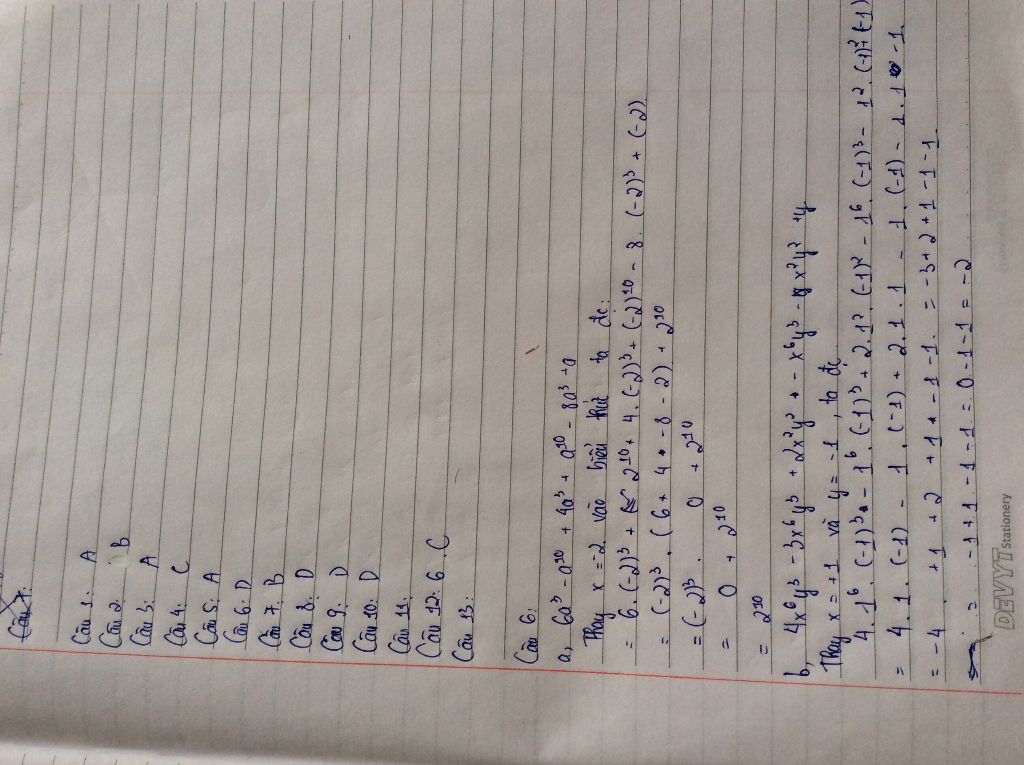 Câu 1: A
Câu 2: B
Câu 3: A
Câu 4: C
Câu 5: A
Câu 6: D
Câu 7: B
Câu 8: D
Câu 9: D
Câu 10: D
Câu 11:
Câu 12: 6. C
Câu 13:
Câu 6:
a, 6a³ - a¹⁰ + 4a³ + a¹⁰ - 8a³ + a
Thay x = -2 vào biểu thức ta đc:
= 6. (-2)³ + 2¹⁰ + 4. (-2)³ + (-2)¹⁰ - 8. (-2)³ + (-2)
= (-2)³. (6 + 4 - 8 - 2) + 2¹⁰
= (-2)³. 0 + 2¹⁰
= 0 + 2¹⁰
= 2¹⁰
b, 4x⁶y³ - 3x⁶y³ + 2x²y² - x⁶y³ - x²y² + y
Thay x = +1 và y = -1, ta đc
4. 1⁶. (-1)³ - 1⁶. (-1)³ + 2. 1². (-1)² - 1⁶. (-1)³ - 1². (-1)² (-1)
= 4. 1. (-1) - 1. (-1) + 2. 1. 1 - 1. (-1) - 1. 1 - 1.
= -4 + 1 + 2 + 1 - 1 - 1. = -3 + 2 + 1 - 1 - 1
= -1 + 1 - 1 - 1 = 0 - 1 - 1 = -2
DEVYT Stationery